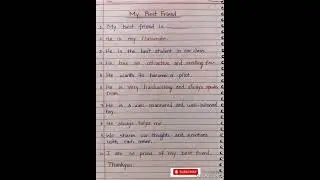 My Best Friend
1. My best friend is
2. He is my classmate.
3. He is the best student in our class.
4. He has an attractive and smiling face.
5. He wants to become a pilot.
6. He is very hardworking and always speaks
truth.
7. He is a well-mannered and well-behaved
boy.
8. He always helps me.
9. We share our thoughts and emotions
with each other.
10. I am so proud of my best friend.
Thankyou.
SUBSCRIBE